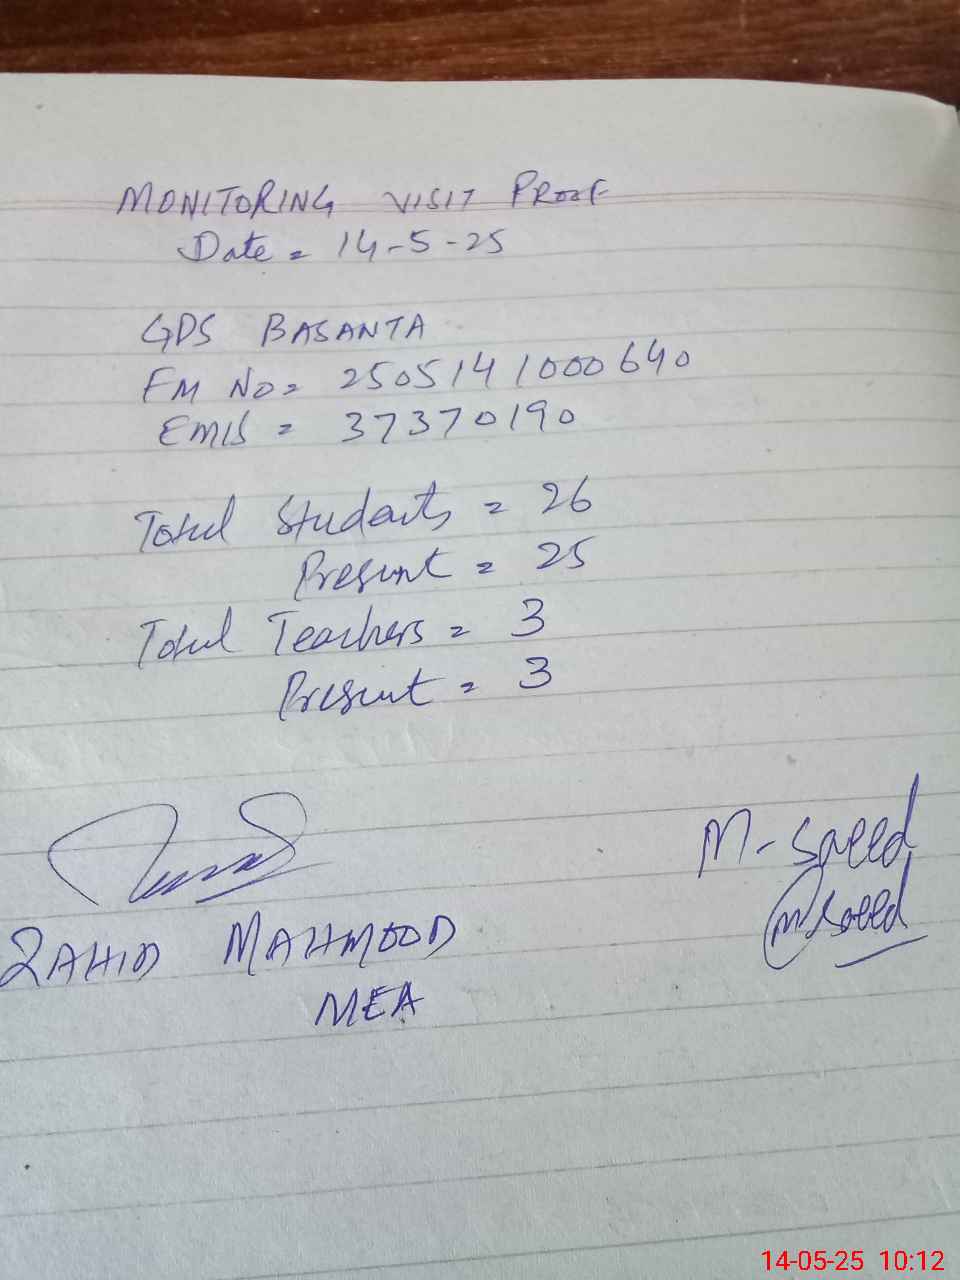 MONITORING VISIT PROOF
Date = 14-5-25
GPS BASANTA
FM NO = 2505141000640
EMIS = 37370190
Total Students = 26
Present = 25
Total Teachers = 3
Present = 3
M-Saeed
M Saeed
ZAHID MAHMOOD
MEA
14-05-25 10:12